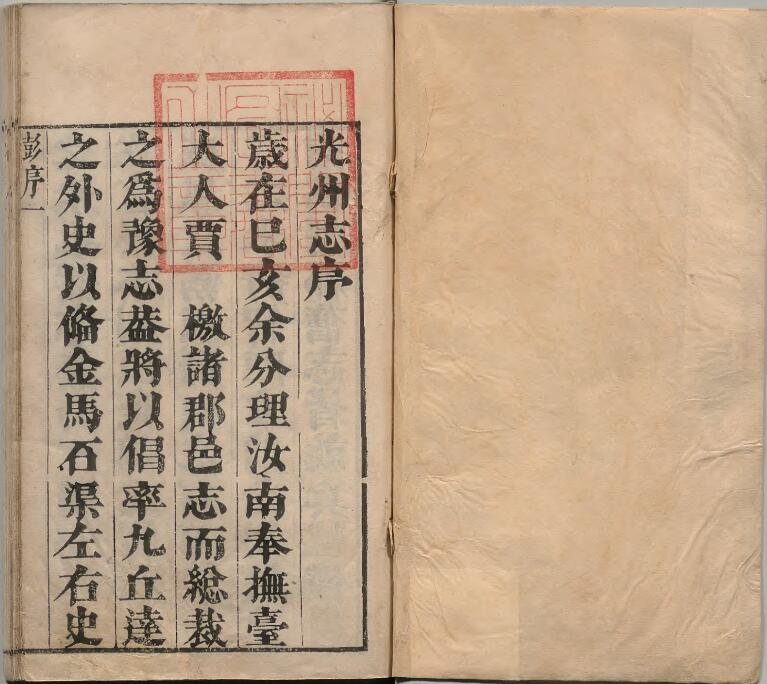 光州志序
歲在巳亥余分理汝南奉撫臺
大人賈 檄諸郡邑志而總裁
之爲豫志葢將以倡率九丘達
之外史以俻金馬石渠左右史
彭序一